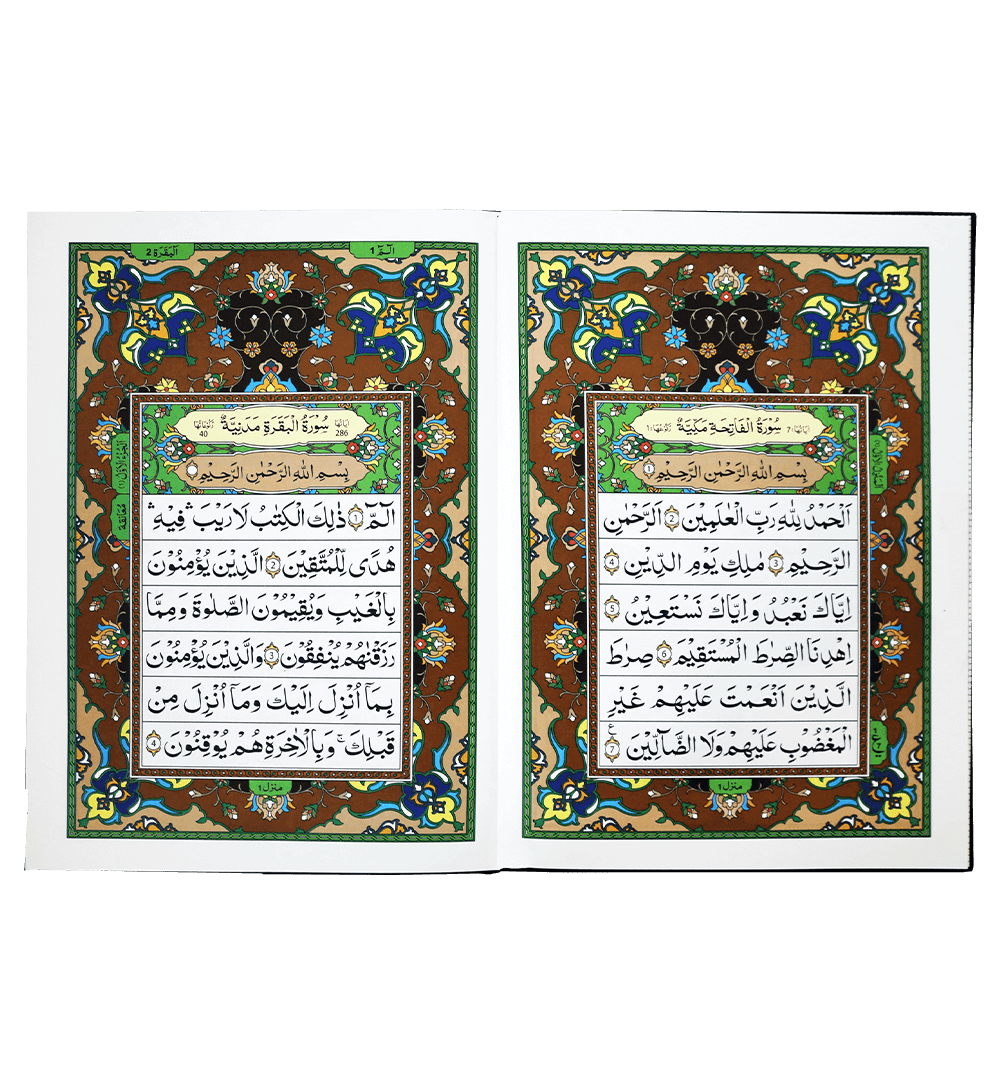 سُوْرَةُ الْفَاتِحَةِ مَكِّيَّةٌ
اٰیَاتُهَا ٧
رُكُوْعُهَا ١
بِسْمِ اللهِ الرَّحْمٰنِ الرَّحِيْمِ 1
اَلْحَمْدُ لِلّٰهِ رَبِّ الْعٰلَمِيْنَ 2 الرَّحْمٰنِ
الرَّحِيْمِ 3 مٰلِكِ يَوْمِ الدِّيْنِ 4
اِيَّاكَ نَعْبُدُ وَاِيَّاكَ نَسْتَعِيْنُ 5
اِهْدِنَا الصِّرَاطَ الْمُسْتَقِيْمَ 6 صِرَاطَ
الَّذِيْنَ اَنْعَمْتَ عَلَيْهِمْ غَيْرِ
الْمَغْضُوْبِ عَلَيْهِمْ وَلَا الضَّآلِّيْنَ 7
منزل ١
اَلْبَقَرَة 2
الٓمّٓ 1
سُوْرَةُ الْبَقَرَةِ مَدَنِيَّةٌ
اٰیَاتُهَا 286
رُكُوْعَاتُهَا 40
بِسْمِ اللهِ الرَّحْمٰنِ الرَّحِيْمِ
الٓمّٓ 1 ذٰلِكَ الْكِتٰبُ لَا رَيْبَ ۛ فِيْهِ ۛ
هُدًى لِّلْمُتَّقِيْنَ 2 الَّذِيْنَ يُؤْمِنُوْنَ
بِالْغَيْبِ وَيُقِيْمُوْنَ الصَّلٰوةَ وَمِمَّا
رَزَقْنٰهُمْ يُنْفِقُوْنَ 3 وَالَّذِيْنَ يُؤْمِنُوْنَ
بِمَآ اُنْزِلَ اِلَيْكَ وَمَآ اُنْزِلَ مِنْ
قَبْلِكَ ۚ وَبِالْاٰخِرَةِ هُمْ يُوْقِنُوْنَ 4
اَلْجُزْءُ الْاَوَّلُ (١)
مُعَانَقَة
منزل ١